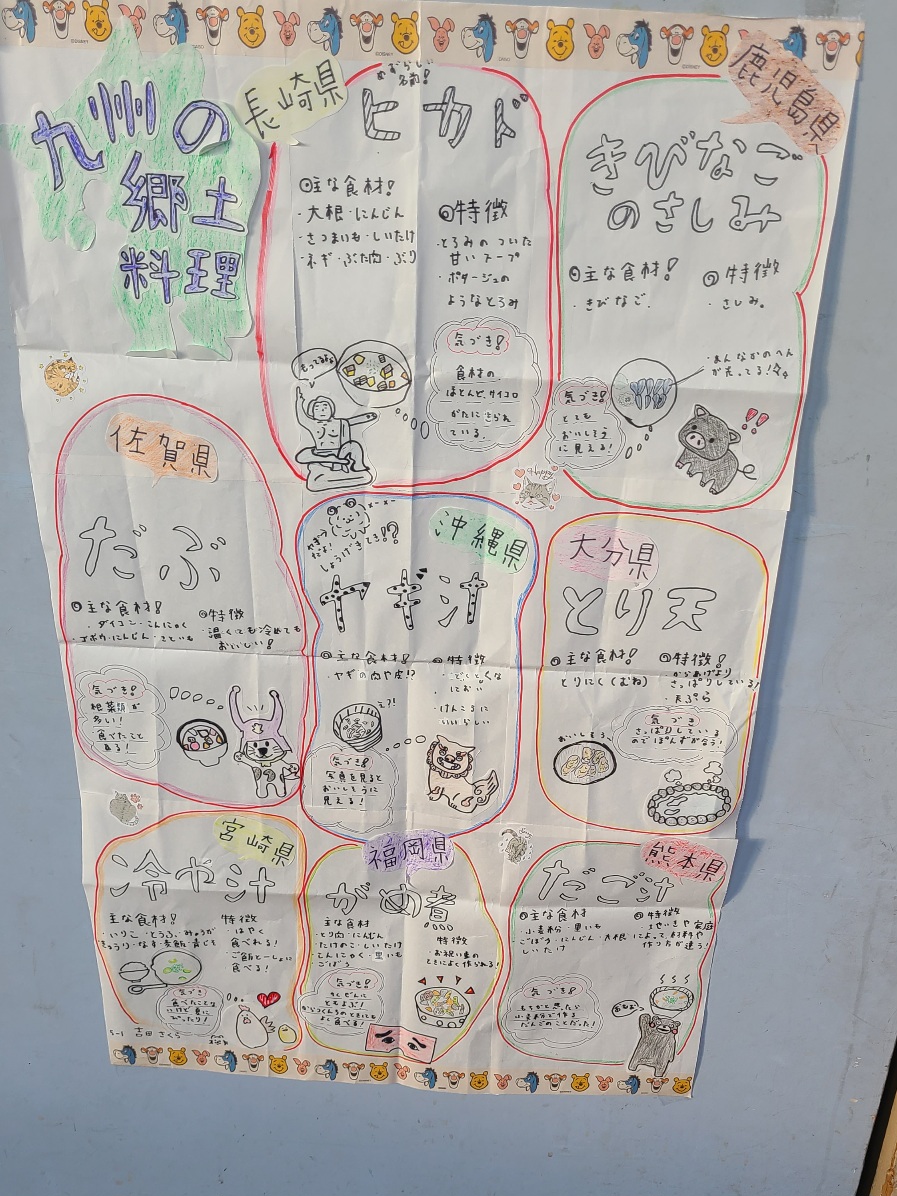 九州の
郷土
料理
長崎県
めずらしい
名前!
ヒカド
◎主な食材!
・大根・にんじん
・さつまいも・しいたけ
・ネギ・ぶた肉・ぶり
◎特徴
・とろみのついた
甘いスープ
・ポタージュの
ようなとろみ
気づき!
食材の
ほとんど、サイコロ
がたにきられ
ている。
鹿児島県
きびなご
のさしみ
◎主な食材!
・きびなご
◎特徴
・さしみ。
・まんなかのへん
が光ってる!
気づき!
とても
おいしそう
に見える!
Happy
佐賀県
だぶ
◎主な食材!
・ダイコン・こんにゃく
・ゴボウ・にんじん・さといも
◎特徴
・温くても冷めても
おいしい!
気づき!
根菜類が
多い!
食べたこと
ある!
沖縄県
しょうげきてき!?
ヤギ汁
◎主な食材!
・ヤギの肉や皮!?
◎特徴
・どくとくな
におい
・けんこうに
いいらしい
え?!
気づき!
写真を見ると
おいしそうに
見える!
大分県
とり天
◎主な食材!
とりにく(むね)
◎特徴!
からあげより
さっぱりしている!
天ぷら
おいしそう。
気づき
さっぱりしている
のでぽんずが合う!
宮崎県
冷や汁
主な食材!
・いりこ・とうふ・みょうが
・きゅうり・なす・麦飯・青じそ
特徴
・はやく
食べれる!
・ご飯といっしょに
食べる!
気づき
食べたことな
いけど夏に
ぴったり!
5-1 吉田さくら
福岡県
がめ煮
主な食材
・とり肉・にんじん
・たけのこ・しいたけ
・こんにゃく・里いも
・ごぼう
特徴
お祝い事の
ときによく作られる!
気づき!
よく食べる!
熊本県
だご汁
◎主な食材
・小麦粉・里いも
・ごぼう・にんじん・大根
しいたけ
◎特徴
・地いきや家庭
によって、材料や
作り方が違う!
気づき!
もちかと思ったら
小麦粉で作る
だんごのことだった!